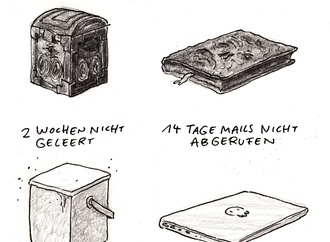 2 WOCHEN NICHT
GELEERT
14 TAGE MAILS NICHT
ABGERUFEN